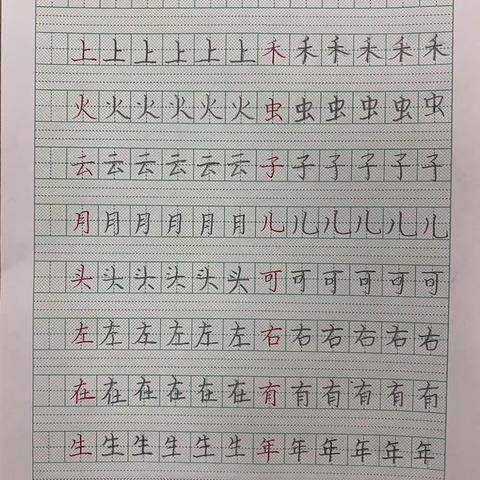 上上上上上上禾禾禾禾禾禾
火火火火火火虫虫虫虫虫虫
云云云云云云子子子子子子
月月月月月月儿儿儿儿儿儿
头头头头头头可可可可可可
左左左左左左右右右右右右
在在在在在在有有有有有有
生生生生生生年年年年年年